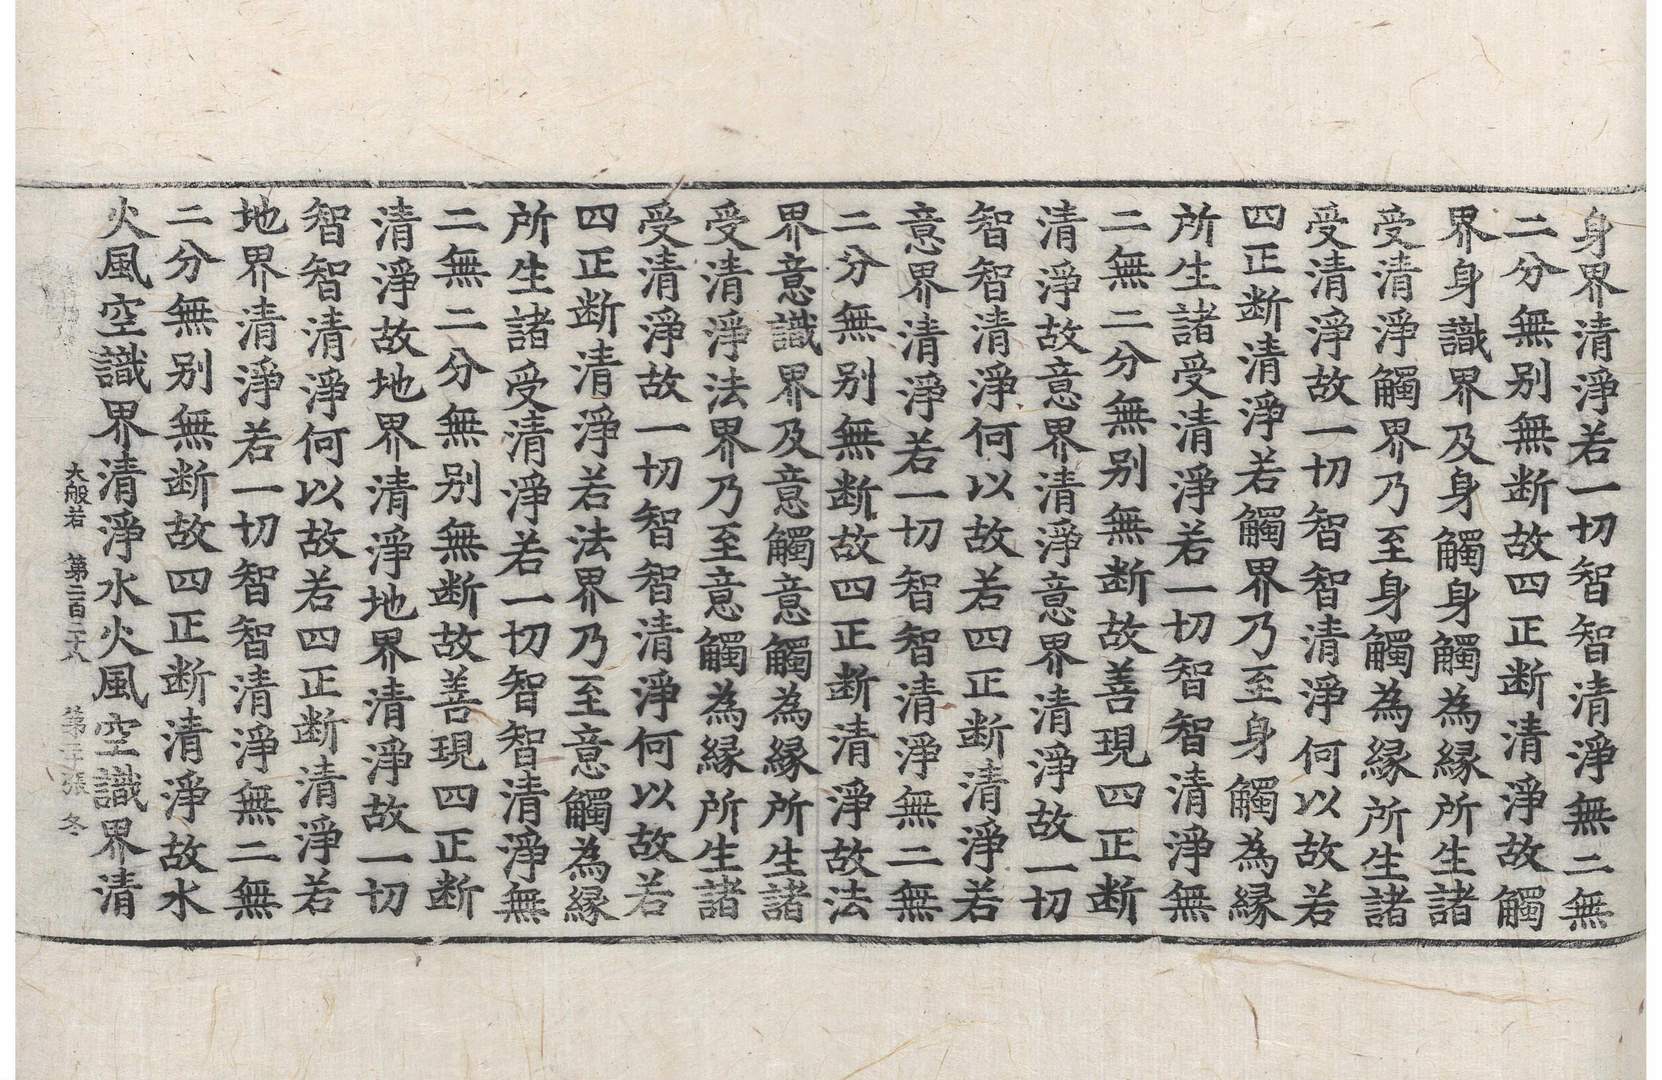 身界清淨若一切智智清淨無二無
二分無别無断故四正断清淨故觸
界身識界及身觸身觸為縁所生諸
受清淨觸界乃至身觸為縁所生諸
受清淨故一切智智清淨何以故若
四正断清淨若觸界乃至身觸為縁
所生諸受清淨若一切智智清淨無
二無二分無别無断故善現四正断
清淨故意界清淨意界清淨故一切
智智清淨何以故若四正断清淨若
意界清淨若一切智智清淨無二無
二分無别無断故四正断清淨故法
界意識界及意觸意觸為縁所生諸
受清淨法界乃至意觸為縁所生諸
受清淨故一切智智清淨何以故若
四正断清淨若法界乃至意觸為縁
所生諸受清淨若一切智智清淨無
二無二分無别無断故善現四正断
清淨故地界清淨地界清淨故一切
智智清淨何以故若四正断清淨若
地界清淨若一切智智清淨無二無
二分無别無断故四正断清淨故水
火風空識界清淨水火風空識界清
大般若 第二百二十八 第二十張 冬